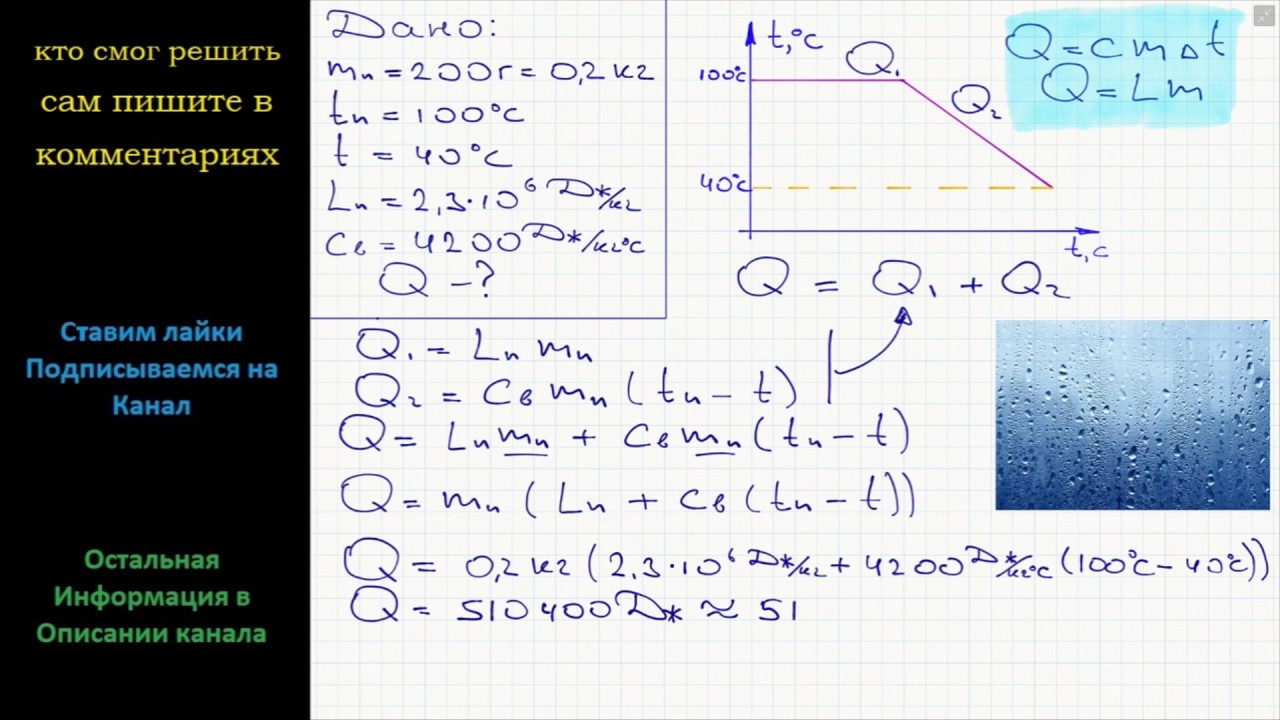 кто смог решить
сам пишите в
комментариях
Ставим лайки
Подписываемся на
Канал
Остальная
Информация в
Описании канала
Дано:
mп = 200г = 0,2 кг
tп = 100°C
t = 40°C
Lп = 2,3·10⁶ Дж/кг
Cв = 4200 Дж/кг°C
Q – ?
t,°C
100°C
Q₁
Q₂
40°C
t,c
Q = cmΔt
Q = Lm
Q = Q₁ + Q₂
Q₁ = Lп mп
Q₂ = Cв mп (tп – t)
Q = Lп mп + Cв mп (tп – t)
Q = mп (Lп + Cв (tп – t))
Q = 0,2 кг (2,3·10⁶ Дж/кг + 4200 Дж/кг°C (100°C – 40°C))
Q = 510400 Дж ≈ 51